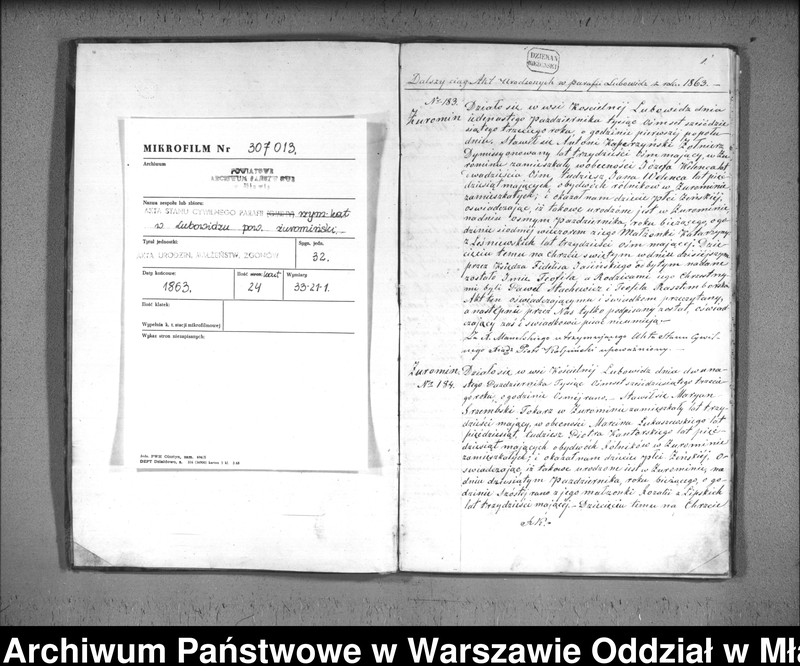 MIKROFILM Nr 307013.
Archiwum
POWIATOWE
ARCHIWUM PAŃSTWOWE
Nazwa zespołu lub zbioru:
AKTA STANU CYWILNEGO PARAFII rzym-kat
w Lubowidzu pow. żuromiński.
Tytuł jednostki:
Sygn. jedn.
AKTA URODZEŃ, MAŁŻEŃSTW, ZGONÓW
32.
Daty końcowe:
Ilość kart
Wymiary
1863.
24
33-21-1.
Ilość klatek:
Wypełnia k. t. stacji mikrofilmowej
Wykaz stron niezapisanych:
DZIENNIK
1
Dalszy ciąg Akt Urodzonych w parafii Lubowidz z roku 1863. –
No 183.
Żuromin
Działo się w wsi Kościelnéj Lubowidzu dnia
jedenastego Października tysiąc ośmset sześćdzie
siątego trzeciego roku, o godzinie pierwszéj popołu
dniu. Stawił się Antoni Kaperzyński Żołnierz
Dymisjonowany, lat trzydzieści ośm mający, w Żu
rominie zamieszkały w obecności Józefa
dwadzieścia ośm, tudzież Jana lat pięć
dziesiąt mających, obydwóch rolników w Żurominie
zamieszkałych; i okazał nam dziecię płci Żeńskiéj,
oświadczając, iż takowe urodzone jest w Żurominie
na dniu ósmym Października, roku bieżącego o go
dzinie siódméj wieczorem z jego Małżonki Katarzyny
z Leśniewskich lat trzydzieści ośm mającéj. Dzie
cięciu temu na Chrzcie świętym w dniu dzisiejszym
przez Księdza Fidelisa odbytym nadane
zostało Imie Teofila, a Rodzicami jego Chrzestny
mi byli Paweł Stachewicz i Teofila
Akt ten oświadczającemu i świadkom przeczytany,
a następnie przez Nas tylko podpisany został, oświad
czający zaś i świadkowie pisać nieumieją. –
Utrzymującego Akta Stanu Cywil
nego Ksiądz Piotr upoważniony. –
Żuromin.
No 184.
Działo się w wsi Kościelnéj Lubowidzu dnia dwuna
stego Października Tysiąc Ośmset sześćdziesiątego trzecie
go roku, o godzinie ósméj rano. – Stawił się Maryan
Grzembski Tokarz w Żurominie zamieszkały lat trzy
dzieści mający, w obecności Marcina Łukaszewskiego lat
pięćdziesiąt, tudzież Piotra Kantorskiego lat pięć
dziesiąt mających obydwóch Rolników w Żurominie
zamieszkałych; i okazał nam dziecię płci Żeńskiéj, O
świadczając, iż takowe urodzone jest w Żurominie, na
dniu dziesiątym Października, roku bieżącego, o go
dzinie szóstéj rano z jego małżonki Rozalii z Lipskich
lat trzydzieści mającéj. – Dziecięciu temu na Chrzcie
Archiwum Państwowe w Warszawie Oddział w Mła